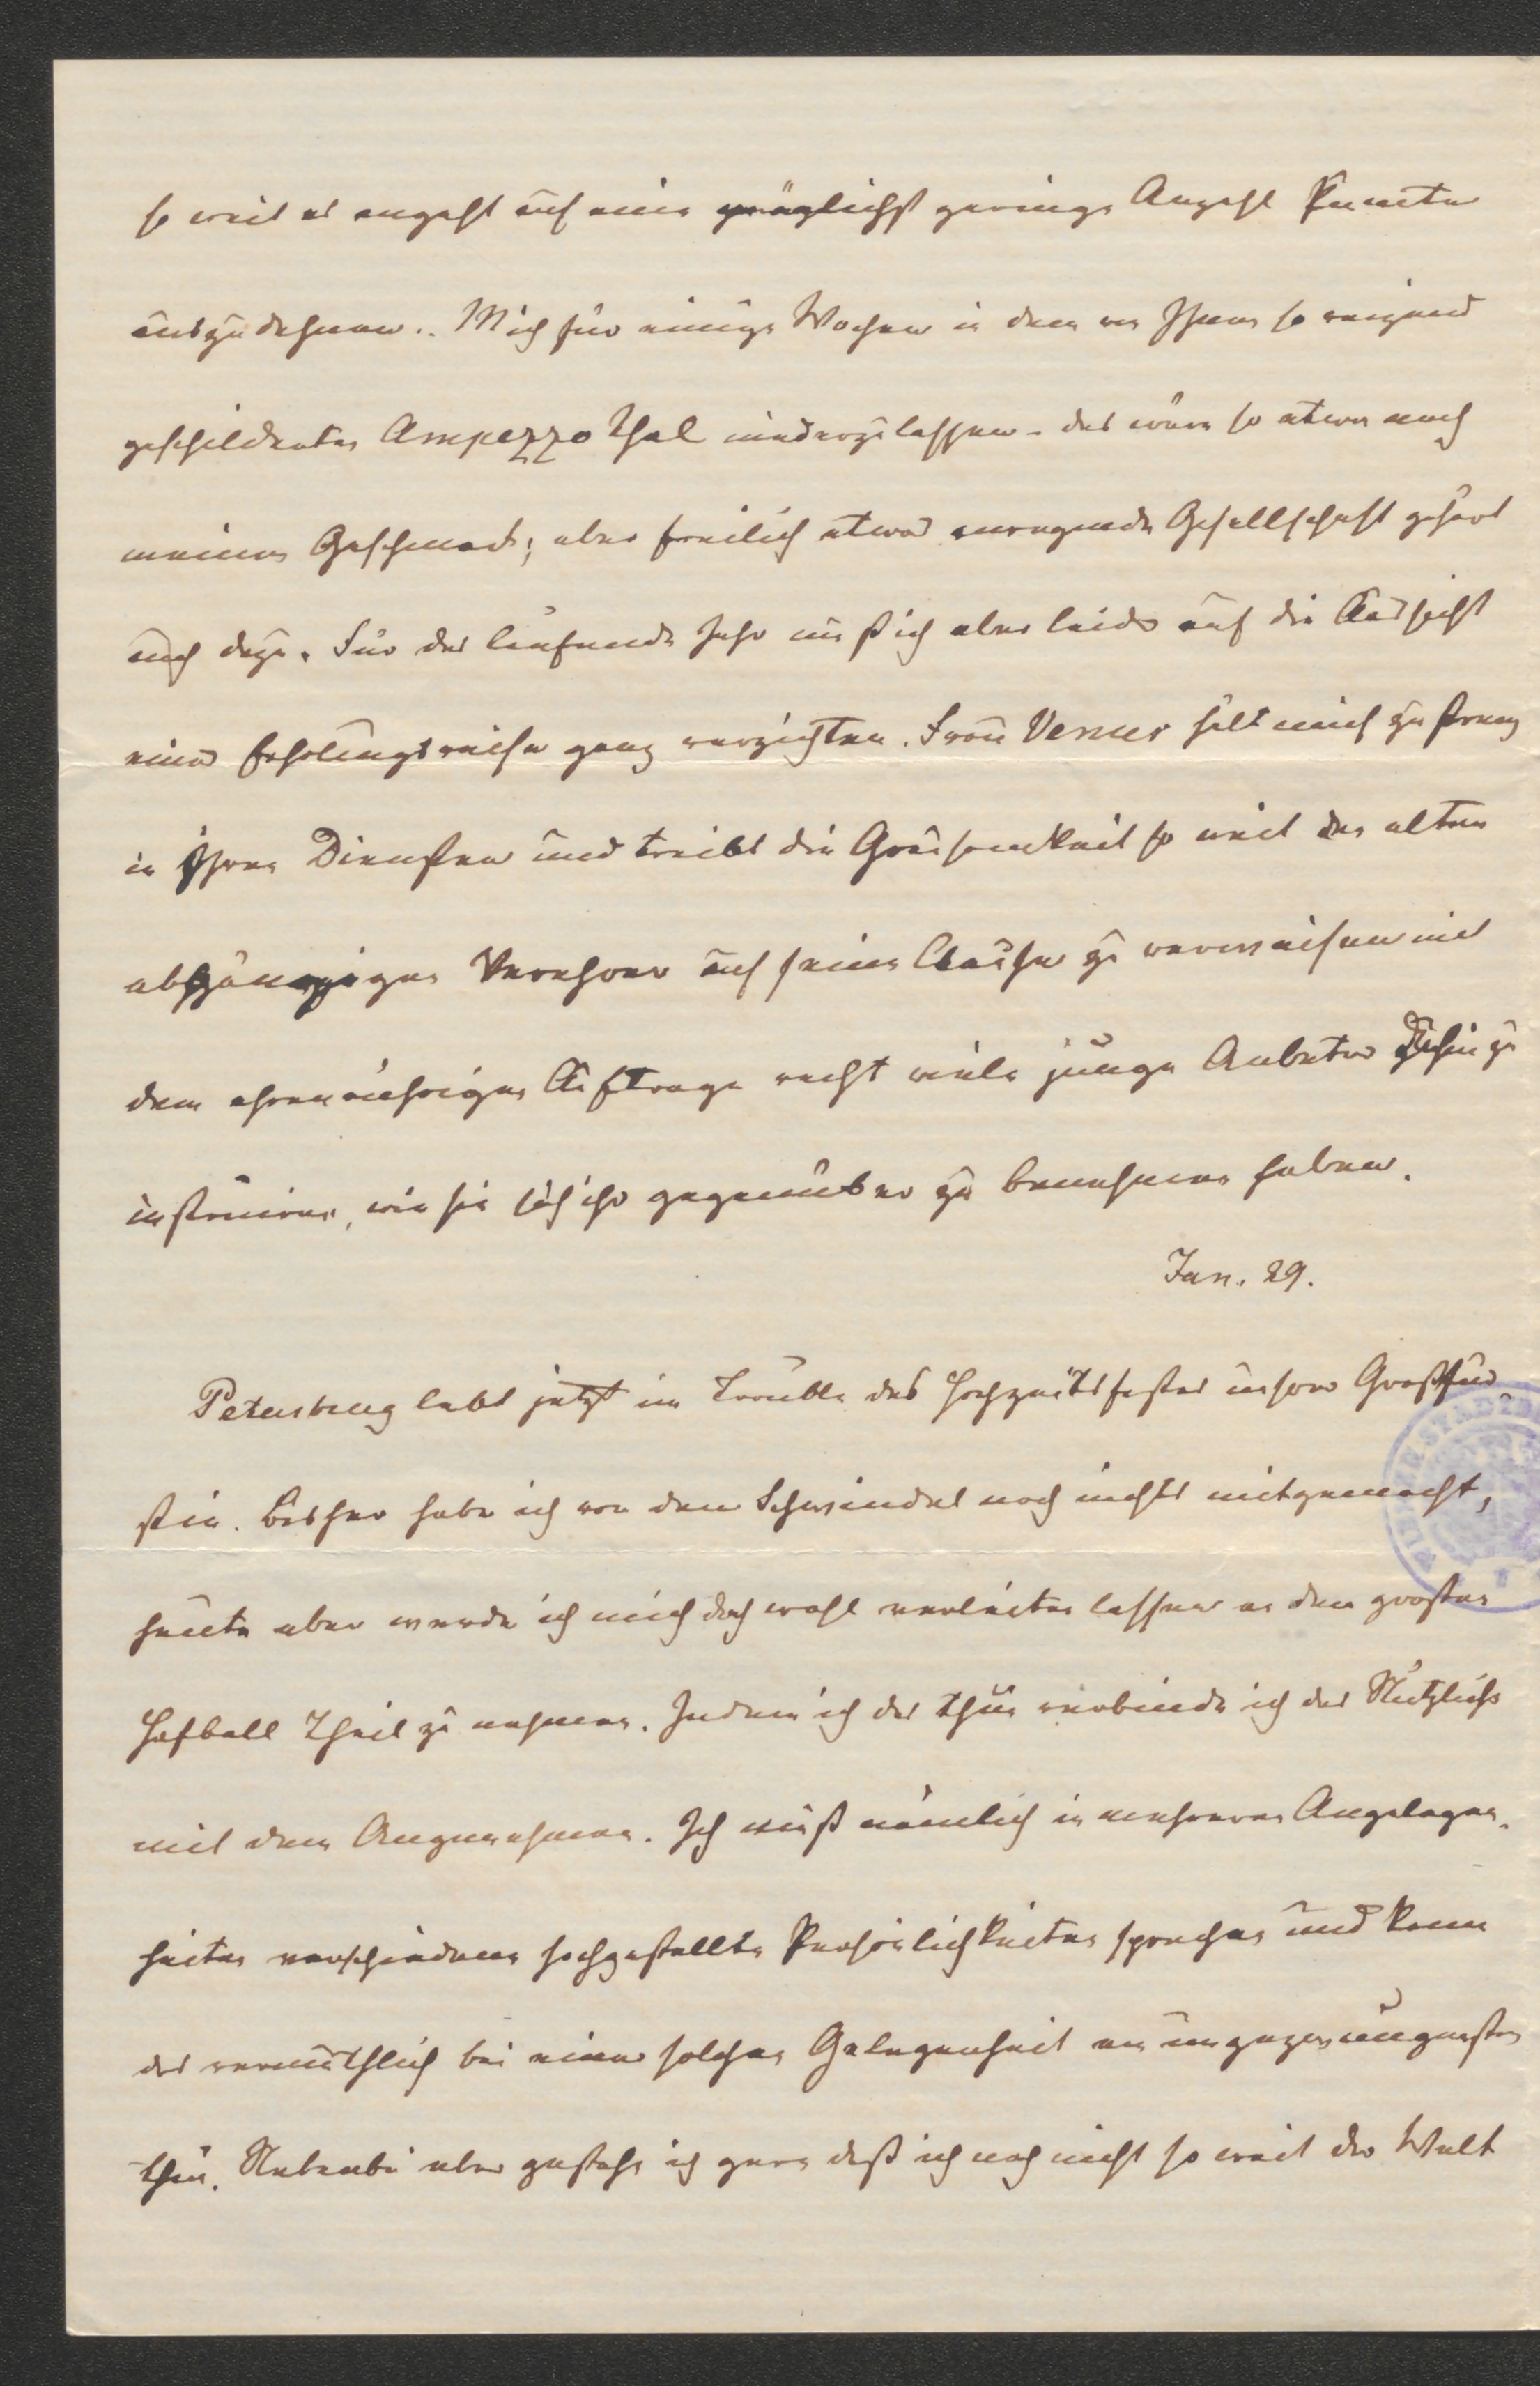 so weit es angeht auf eine möglichst geringe Anzahl Puncte
auszudehnen. Mich für einige Wochen in dem von Ihnen so reizend
geschilderten Ampezzo Thal niederzulassen – das wäre so etwas nach
meinem Geschmack; aber freilich etwas anregende Gesellschaft gehört
auch dazu. Für das laufende Jahr muß ich aber leider auf die Aussicht
einer Erholungsreise ganz verzichten. Frau Venus hält mich zu streng
in Ihren Diensten und treibt die Grausamkeit so weit den alten
abgängigen Verehrer auf seine Clause zu verweisen mit
dem ehrenrührigen Auftrage recht viele junge Anbeter dahin zu
instruiren, wie sie sich ihr gegenüber zu benehmen haben.
Jan. 29.
Petersburg lebt jetzt im Trouble des Hochzeitsfestes unserer Großfür
stin. Bisher habe ich von dem Schwindel noch nichts mitgemacht,
heute aber werde ich mich doch wohl verleiten lassen an dem großen
Hofball Theil zu nehmen. Indem ich das thue verbinde ich das Nützliche
mit dem Angenehmen. Ich muß nämlich in mehreren Angelegen-
heiten verschiedene hochgestellte Persönlichkeiten sprechen und kann
das vermuthlich bei einer solchen Gelegenheit am ungezwungensten
thun. Nebenbei aber gestehe ich gern daß ich noch nicht so weit der Welt